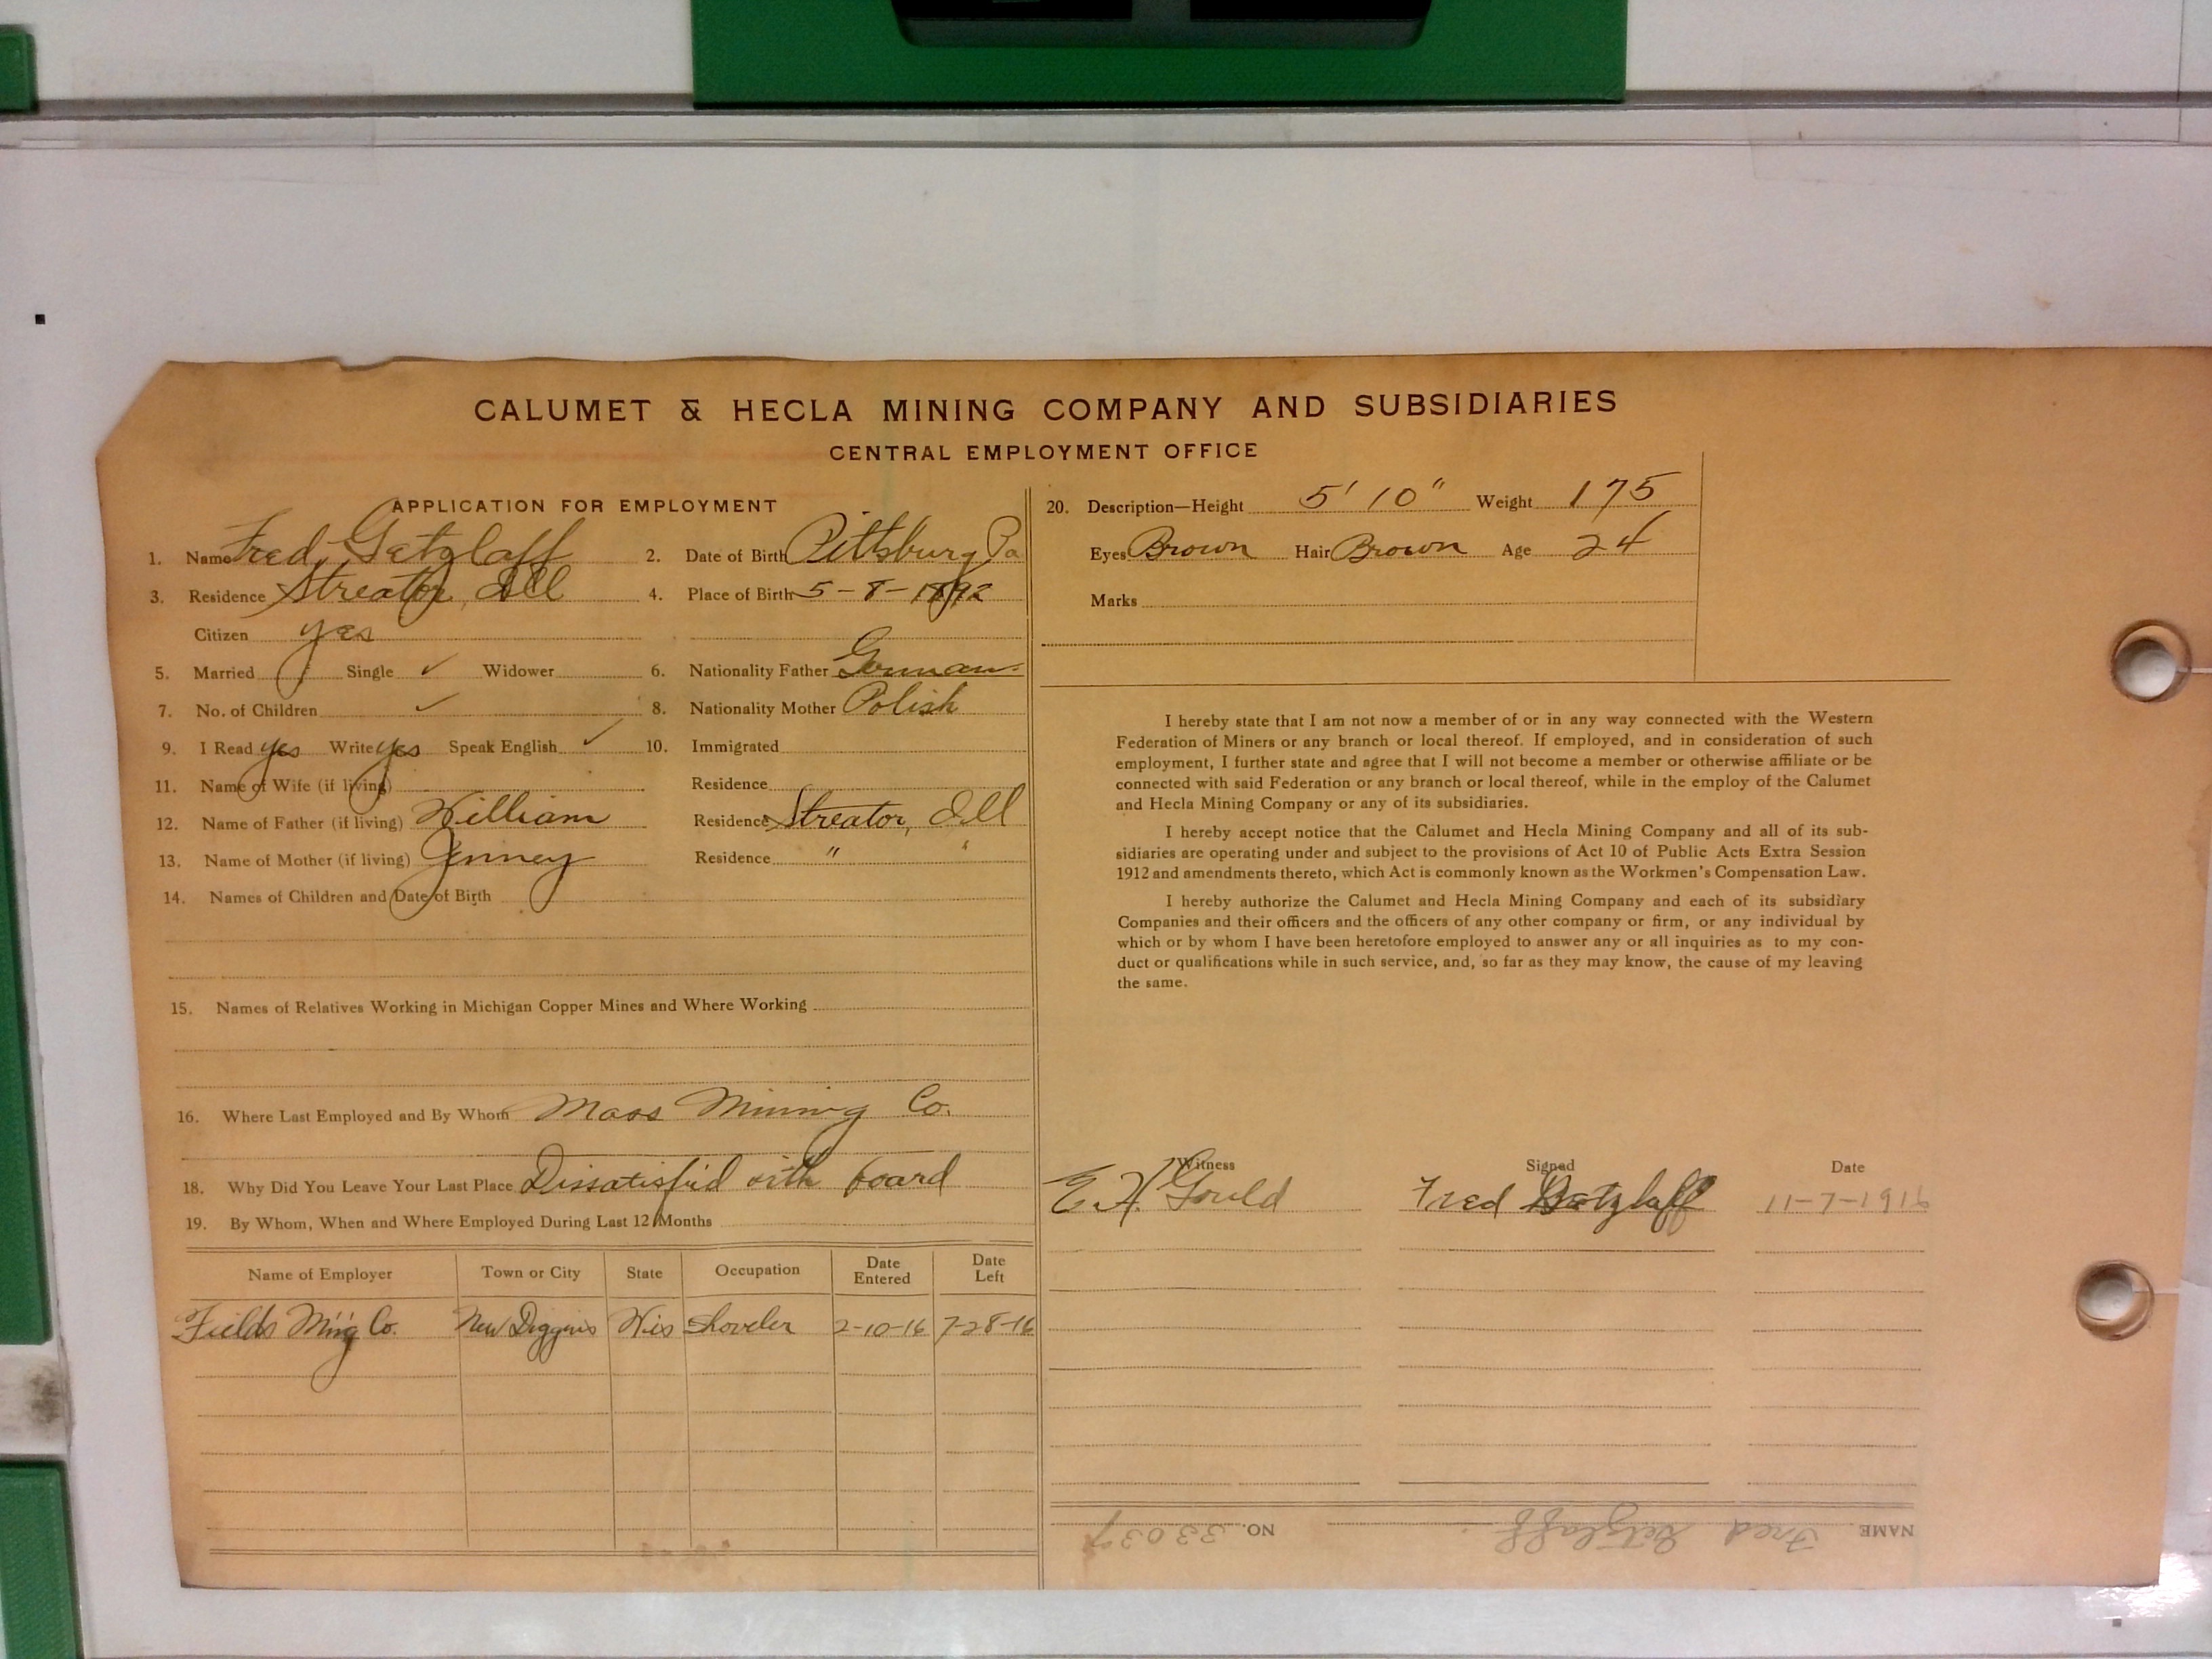 CALUMET & HECLA MINING COMPANY AND SUBSIDIARIES
CENTRAL EMPLOYMENT OFFICE
APPLICATION FOR EMPLOYMENT
1. Name Fred Getzlaff 2. Date of Birth Pittsburg Pa
3. Residence Streator, Ill 4. Place of Birth 5-8-1892
Citizen yes
5. Married Single ✓ Widower 6. Nationality Father German
7. No. of Children ✓ 8. Nationality Mother Polish
9. I Read yes Write yes Speak English ✓ 10. Immigrated
11. Name of Wife (if living) Residence
12. Name of Father (if living) William Residence Streator, Ill
13. Name of Mother (if living) Jenney Residence " "
14. Names of Children and Date of Birth
15. Names of Relatives Working in Michigan Copper Mines and Where Working
16. Where Last Employed and By Whom Mass Mining Co.
18. Why Did You Leave Your Last Place Dissatisfid with board
19. By Whom, When and Where Employed During Last 12 Months
Name of Employer Town or City State Occupation Date Entered Date Left
Fields M'n'g Co. New Diggins Wis Shoveler 2-10-16 7-28-16
20. Description—Height 5' 10" Weight 175
Eyes Brown Hair Brown Age 24
Marks
I hereby state that I am not now a member of or in any way connected with the Western
Federation of Miners or any branch or local thereof. If employed, and in consideration of such
employment, I further state and agree that I will not become a member or otherwise affiliate or be
connected with said Federation or any branch or local thereof, while in the employ of the Calumet
and Hecla Mining Company or any of its subsidiaries.
I hereby accept notice that the Calumet and Hecla Mining Company and all of its sub-
sidiaries are operating under and subject to the provisions of Act 10 of Public Acts Extra Session
1912 and amendments thereto, which Act is commonly known as the Workmen's Compensation Law.
I hereby authorize the Calumet and Hecla Mining Company and each of its subsidiary
Companies and their officers and the officers of any other company or firm, or any individual by
which or by whom I have been heretofore employed to answer any or all inquiries as to my con-
duct or qualifications while in such service, and, so far as they may know, the cause of my leaving
the same.
Witness Signed Date
E. H. Gould Fred Getzlaff 11-7-1916
NAME Fred Getzlaff NO. 33037